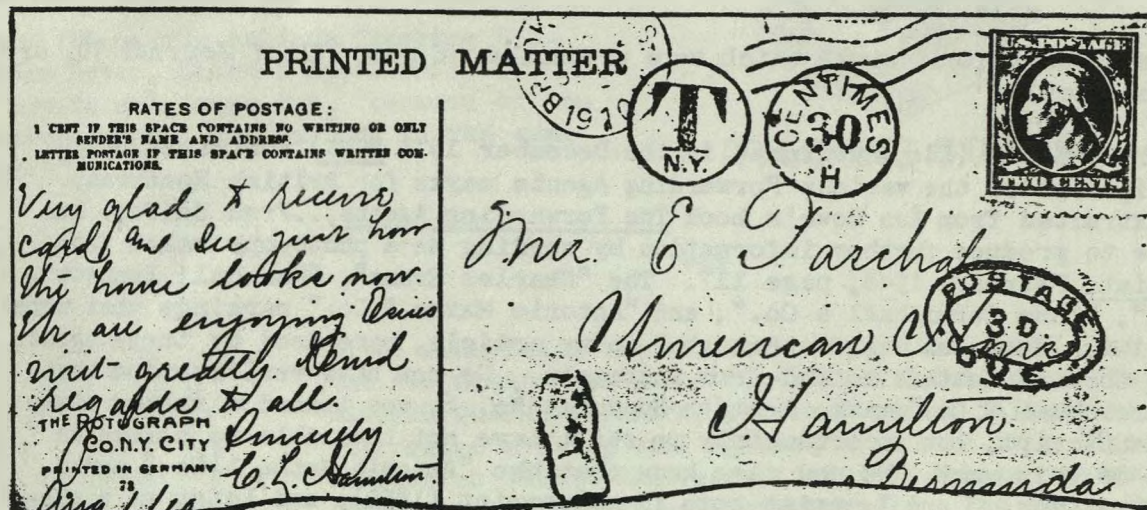 PRINTED MATTER
RATES OF POSTAGE:
1 CENT IF THIS SPACE CONTAINS NO WRITING OR ONLY
SENDER'S NAME AND ADDRESS.
LETTER POSTAGE IF THIS SPACE CONTAINS WRITTEN COM-
MUNICATIONS.
Very glad to receive
card, and see just how
the home looks now.
We are enjoying
visit greatly
regards to all.
Sincerely
C. L. Hamilton
THE ROTOGRAPH
CO. N.Y. CITY
PRINTED IN GERMANY
78
1910
T
N.Y.
CENTIMES
30
H
U.S. POSTAGE
TWO CENTS
Mr. E
American
Hamilton
Bermuda
POSTAGE
3D.
DUE